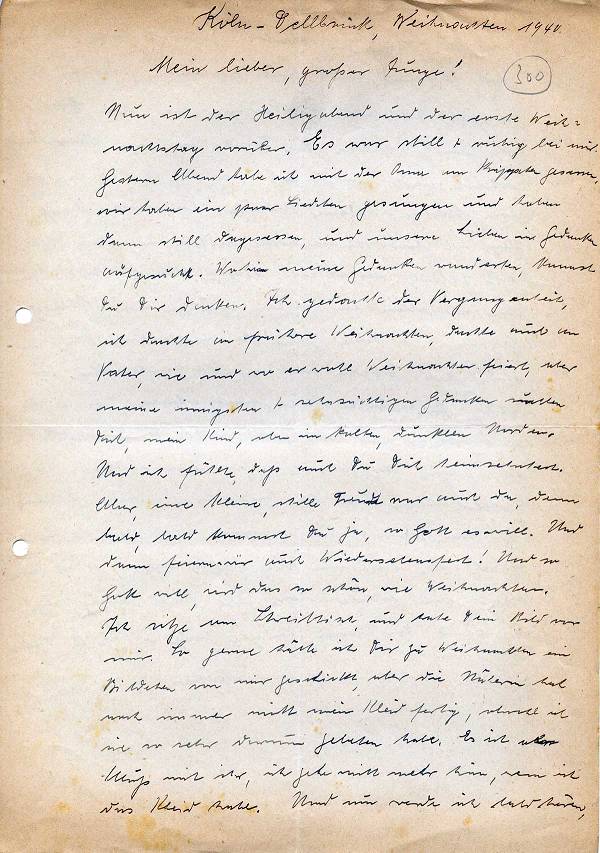 Köln-Dellbrück, Weihnachten 1940.
300
Mein lieber, großer Junge!
Nun ist der Heiligabend und der erste Weih-
nachtstag vorüber. Es war still & ruhig bei mir.
Gestern Abend habe ich mit der Oma am Krippchen gesessen,
wir haben ein paar Liedchen gesungen und haben
dann still dagesessen, und unsere Lieben in Gedanken
aufgesucht. Wohin meine Gedanken wanderten, kannst
Du Dir denken. Ich gedachte der Vergangenheit,
ich dachte an frühere Weihnachten, dachte auch an
Vater, wie und wo er wohl Weihnachten feiert, aber
meine innigsten & sehnsüchtigen Gedanken suchten
Dich, mein Kind, oben im kalten, dunklen Norden.
Und ich fühlte, daß auch Du Dich heimsehntest.
Aber, eine kleine, stille Freude war auch da, denn
bald, bald kommst Du ja, so Gott es will. Und
dann feiern wir auch Wiedersehensfest! Und so
Gott will, wird das so schön, wie Weihnachten.
Ich sitze am Schreibtisch, und habe Dein Bild vor
mir. So gerne hätte ich Dir zu Weihnachten ein
Bildchen von mir geschickt, aber die Näherin hat
noch immer nicht mein Kleid fertig, obwohl ich
sie so sehr darum gebeten habe. Es ist aber
Schluß mit ihr, ich gehe nicht mehr hin, wenn ich
das Kleid habe. Und nun werde ich bald hören,